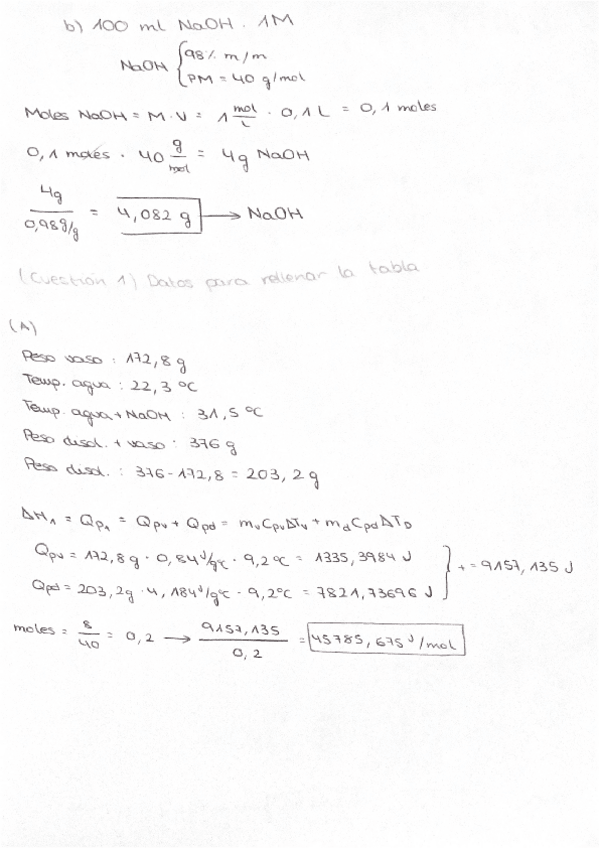 b) 100 ml NaOH. 1M
NaOH { 98% m/m
PM = 40 g/mol
Moles NaOH = M·V = 1 mol/L · 0,1 L = 0,1 moles
0,1 moles · 40 g/mol = 4g NaOH
4g / 0,98g/g = 4,082 g → NaOH
(Cuestion 1) Datos para rellenar la tabla
(A)
Peso vaso : 172,8 g
Temp. agua : 22,3 ºC
Temp. agua + NaOH : 31,5 ºC
Peso disol. + vaso : 376 g
Peso disol. : 376 - 172,8 = 203,2 g
ΔH₁ = Qp₁ = Qpv + Qpd = mvCpvΔTv + mdCpdΔTD
Qpv = 172,8g · 0,84 J/gºC · 9,2ºC = 1335,3984 J
Qpd = 203,2g · 4,184 J/gºC · 9,2ºC = 7821,73696 J } + = 9157,135 J
moles = 8/40 = 0,2 → 9157,135 / 0,2 = 45785,675 J/mol